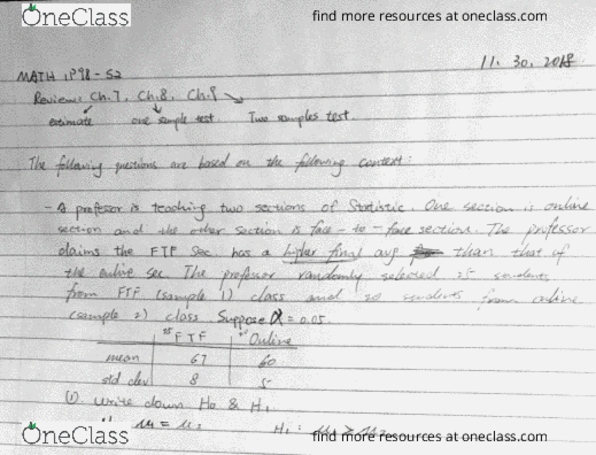 OneClass
find more resources at oneclass.com
11. 30. 2018
MATH 1P98 - S2
Review: Ch.7, Ch.8, Ch.9
estimate one sample test Two samples test.
The following questions are based on the following context:
- A professor is teaching two sections of Statistic. One section is online
section and the other section is face - to - face sections. The professor
claims the FTF Sec. has a higher final avg than that if
the online sec. The professor randomly selected 25 students
from FTF (sample 1) class and 20 students from online
(sample 2) class Suppose α = 0.05.
FTF Online
mean 67 60
std dev 8 5
① write down H0 & H1
μ1 = μ2 H1: μ1 > μ2
OneClass
find more resources at oneclass.com